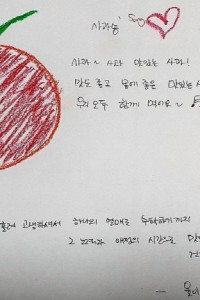 사과송 Song
사과~ 사과 맛있는 사과!
맛도 좋고 몸에 좋은 맛있는 사
우리 모두 함께 먹어요~
흘려 고생하셔서 하나의 열매로 수확하기까지
그 노력과 애정의 시간으로 맛